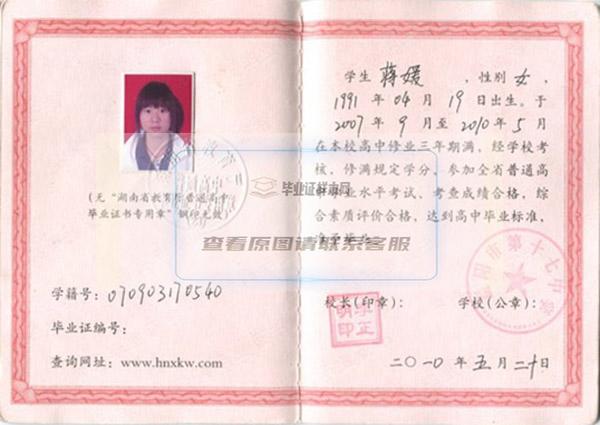 (无“湖南省教育厅普通高中
毕业证书专用章”钢印无效)
学籍号:070903170540
毕业证编号:
查询网址:www.hnxkw.com
学生 蒋媛 ,性别 女 ,
1991 年 04 月 19 日出生。于
2007 年 9 月至 2010 年 5 月
在本校高中修业三年期满,经学校考
核,修满规定学分,参加全省普通高
中毕业水平考试、考查成绩合格,综
合素质评价合格,达到高中毕业标准,
准予毕业。
校长(印章): 学校(公章):
二〇一〇 年 五 月 二十 日
毕业证样本网
查看原图请联系客服
市第十七中学